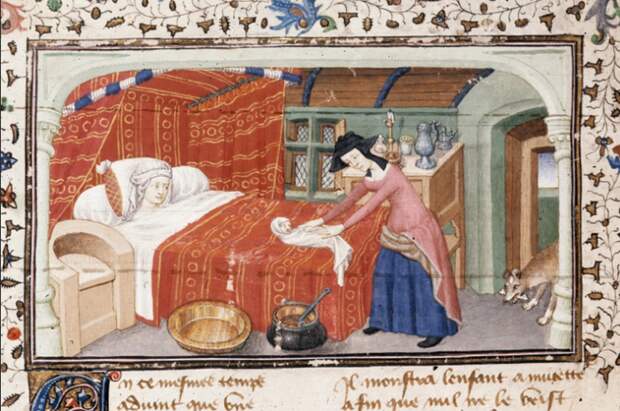 En ce mesmes temps
aduint que vne
Il monstra lenfant a
afin que nul ne le veist